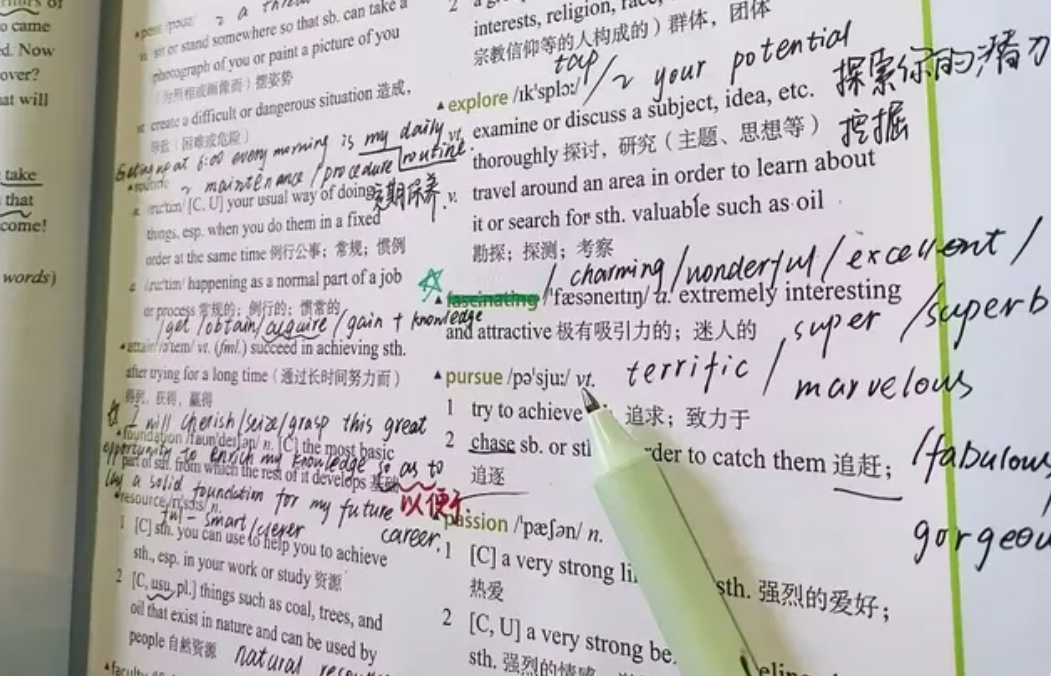 o came
d. Now
over?
at will
take
that
come!
words)
sit or stand somewhere so that sb. can take a
photograph of you or paint a picture of you
（为照相或画像而）摆姿势
create a difficult or dangerous situation 造成，
导致（困难或危险）
Getting up at 6:00 every morning is my daily routine.
~ maintenance / procedure
定期保养
[C, U] your usual way of doing
things, esp. when you do them in a fixed
order at the same time 例行公事；常规；惯例
happening as a normal part of a job
or process 常规的；例行的；惯常的
/get /obtain/ acquire /gain + knowledge
vt. (fml.) succeed in achieving sth.
after trying for a long time（通过长时间努力而）
得到，获得，赢得
I will cherish/seize/grasp this great
foundation /faʊnˈdeɪʃən/ n. [C] the most basic
opportunity to enrich my knowledge so as to
part of sth. from which the rest of it develops 基础
lay a solid foundation for my future career.
以便于
resource
ful - smart/clever
1 [C] sth. you can use to help you to achieve
sth., esp. in your work or study 资源
2 [C, usu. pl.] things such as coal, trees, and
oil that exist in nature and can be used by
people 自然资源
natural
interests, religion,
宗教信仰等的人构成的）群体，团体
tap / ~ your potential
探索你的潜力
挖掘
▲explore /ɪkˈsplɔː/
vt. examine or discuss a subject, idea, etc.
thoroughly 探讨，研究（主题、思想等）
v. travel around an area in order to learn about
it or search for sth. valuable such as oil
勘探；探测；考察
/ charming /wonderful / excellent /
▲fascinating /ˈfæsəneɪtɪŋ/ a. extremely interesting
and attractive 极有吸引力的；迷人的
super /superb
terrific / marvelous
▲pursue /pəˈsjuː/ vt.
1 try to achieve 追求；致力于
2 chase sb. or order to catch them 追赶；
追逐
/fabulous
passion /ˈpæʃən/ n.
1 [C] a very strong sth. 强烈的爱好；
热爱
2 [C, U] a very strong
sth. 强烈的情感